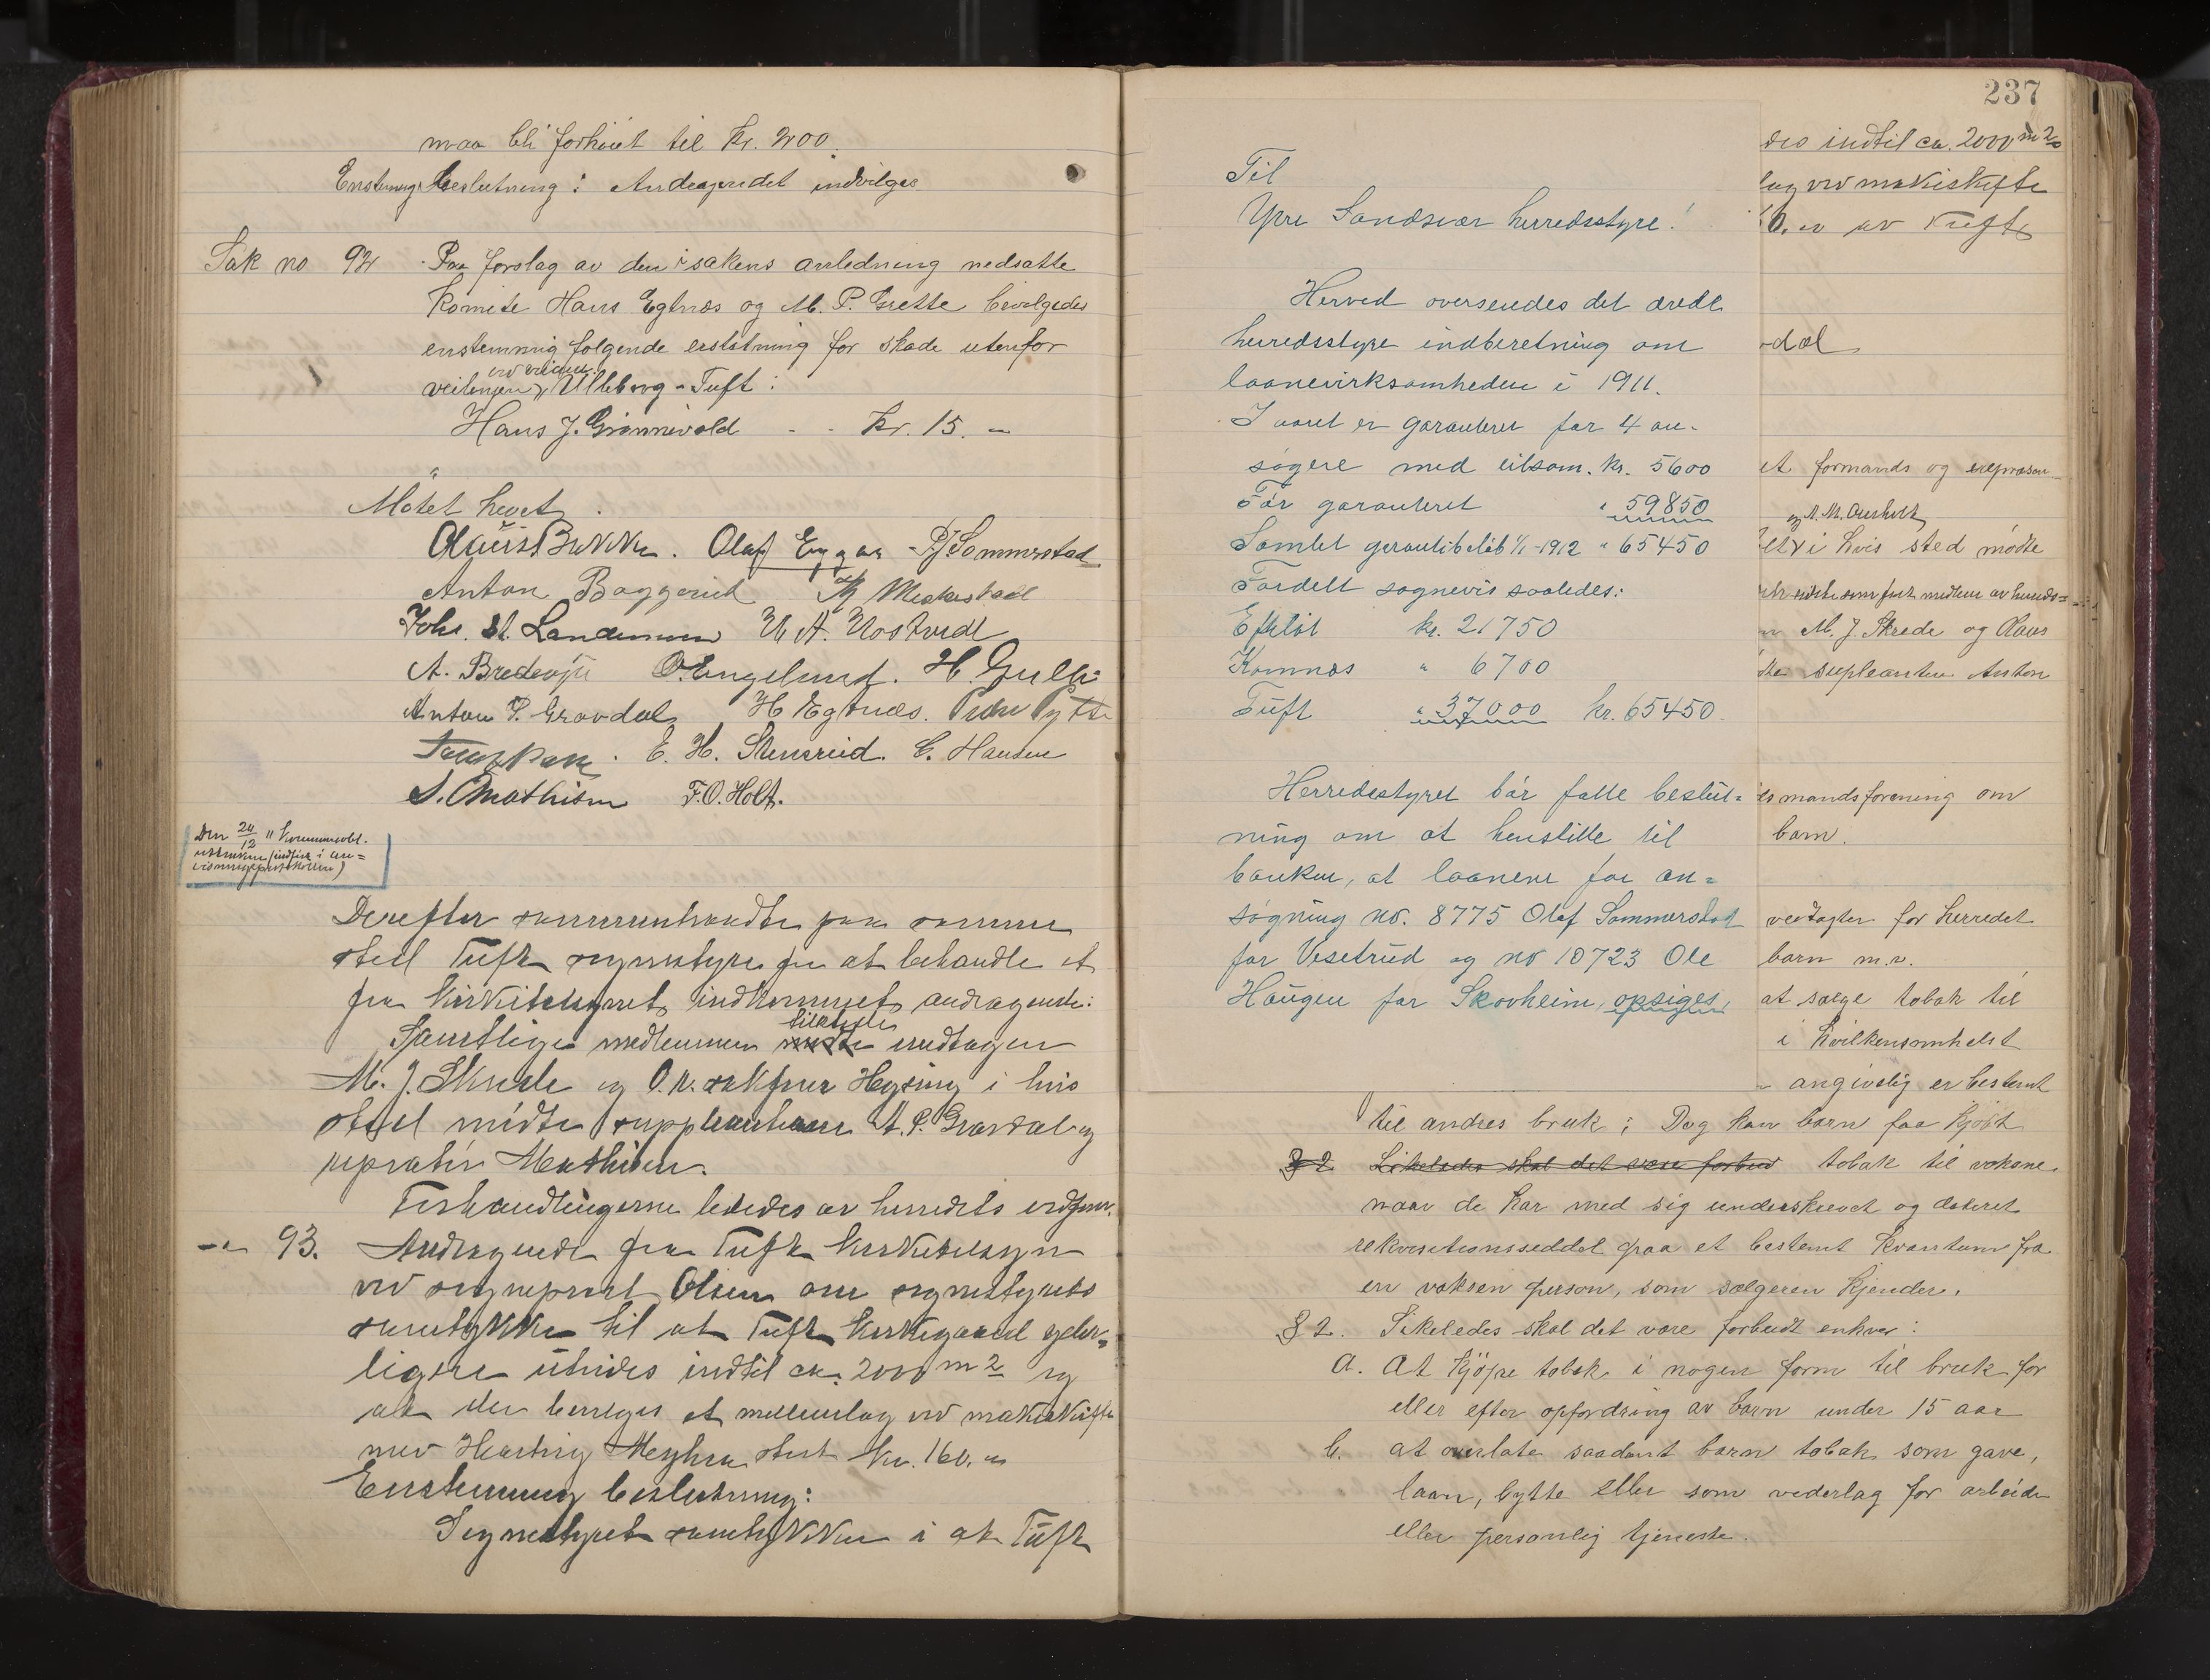 maa bli forhöiet til kr. 200.
Enstemmig beslutning: Andragendet indvilges
Sak no 92 Paa forslag av den i sakens anledning nedsatte
komite Hans Egtnæs og M. P. Grette bevilgedes
enstemmig følgende erstatning for skade utenfor
veilinjen ved veianl. Ulleborg - Tuft:
Hans J. Grønnevold - - kr. 15. -
Mötet hevet.
Olaus Bakken. Olaf Enggar P. J. Sommerstad
Anton Baggerud
Johs. St. Landsmem N. A. Nostvedt
A. Bredesen O. Engelund. H. Gulli
Anton P. Gravdal H Egtnæs. Peder
E. H. Stensrud. C. Hansen
S. Mathisen F. O. Holt.
Den 24/12 11 kommuneobl.
utstrukne (indført i an=
visningsprotokollen)
Derefter sammentraadte paa samme
sted Tuft sognestyre for at behandle et
fra kirketilsynet indkommet andragende:
Samtlige medlemmer tilstede undtagen
M. J. Skrede og O.r. sakförer Heysing i hvis
sted mödte suppleanterne A. P. Gravdal og
reparatör Mathisen.
Forhandlingerne lededes av herredets ordförer.
-"- 93. Andragende fra Tuft kirketilsyn
ved sogneprest Olsen om sognestyrets
samtykke til at Tuft kirkegaard yder=
ligere utvides indtil ca. 2000 m2 og
at der betales et mellemlag ved makeskifte
med Hartvig Meyhra stort kr. 160. -
Enstemmig beslutning:
Sognestyret samtykker i at Tuft
237
Til
Ytre Sandsvær herredsstyre!
Herved oversendes det ærede
herredsstyre indberetning om
laanevirksomheden i 1911.
I aaret er garanteret for 4 an-
søgere med tilsam. kr. 5600
Før garanteret " 59850
Samlet garantibeløb 1/1-1912 " 65450
Fordelt sognevis saaledes:
Efteløt kr. 21750
Komnæs " 6700
Tuft " 37000 kr. 65450.
Herredsstyret bør fatte beslut=
ning om at henstille til
banken, at laanene for an=
søgning no. 8775 Olaf Sommerstad
for Vesetrud og no 10723 Ole
Haugen for Skovheim, opsiges,
des indtil ca. 2000 m2
lag ved makeskifte
60. - av Tuft
dal
et formands og
og A. M. Aasholt
i hvis sted mødte
M. J. Skrede og Olaus
supleanten Anton
mandsforening om
barn.
vedtagter for herredet
barn m.v.
at sælge tobak til
i hvilkensomhelst
angivelig er bestemt
til andres bruk; Dog kan barn faa kjøbt
§ 2 Likeledes skal det være forbud tobak til voksne
naar de har med sig underskrevet og dateret
rekvisitionsseddel paa et bestemt kvantum fra
en voksen person, som sælgeren kjender.
§ 2. Likeledes skal det være forbudt enhver:
a. At kjøpe tobak i nogen form til bruk for
eller efter opfordring av barn under 15 aar
b. at overlate saadant barn tobak som gave,
laan, bytte eller som vederlag for arbeide
eller personlig tjeneste.